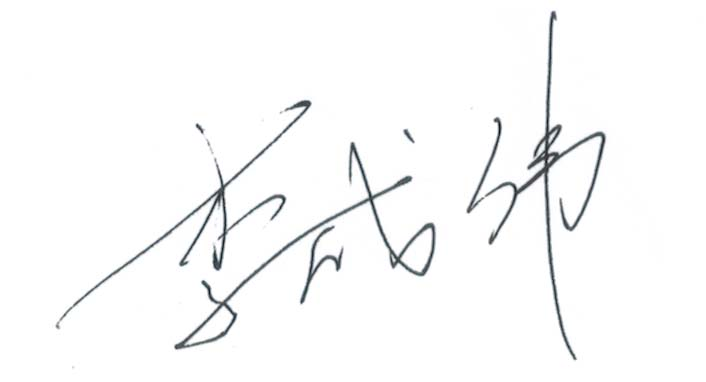 李成伟